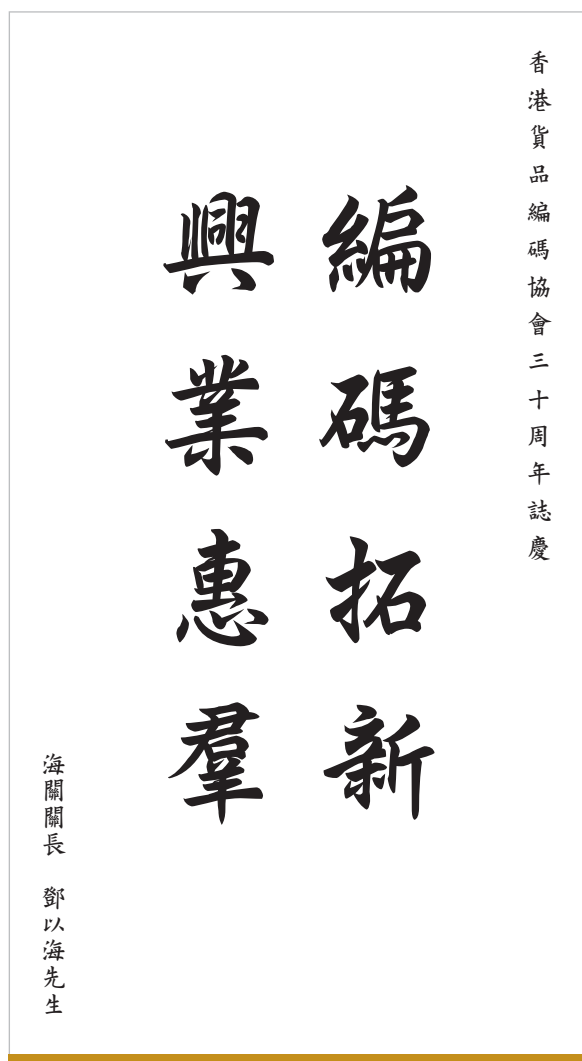 香港貨品編碼協會三十周年誌慶
編碼拓新
興業惠羣
海關關長 鄧以海先生